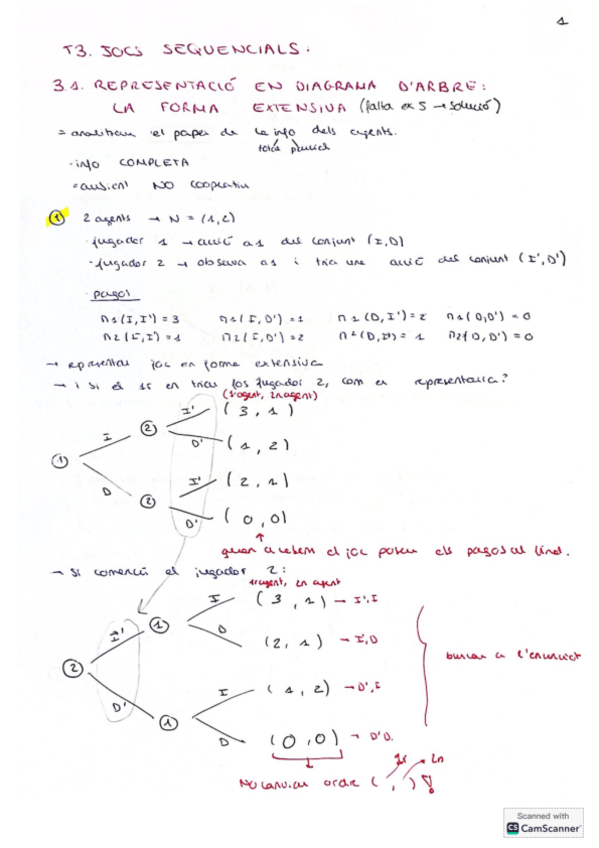 1
T3. JOCS SEQUENCIALS:
3.1. REPRESENTACIÓ EN DIAGRAMA D'ARBRE:
LA FORMA EXTENSIVA (falta ex 5 → solució)
= analitzem el paper de la info dels agents.
total / parcial
· info COMPLETA
· ambient NO cooperatiu
① 2 agents → N = (1,2)
· jugador 1 → acció a1 del conjunt (I,D)
· jugador 2 → observa a1 i tria una acció del conjunt (I',D')
· pagos
π1(I,I') = 3 π1(I,D') = 1 π1(D,I') = 2 π1(D,D') = 0
π2(I,I') = 1 π2(I,D') = 2 π2(D,I') = 1 π2(D,D') = 0
→ representar joc en forma extensiva
→ i si el 1r en triar fos jugador 2, com es representaria?
(1r agent, 2n agent)
I' (3,1)
I ② D' (1,2)
①
D ② I' (2,1)
D' (0,0)
quan acabem el joc posem els pagos al final.
→ Si comença el jugador 2:
1r agent, 2n agent
I (3,1) → I',I
I' ① D (2,1) → I',D
②
buscar a l'enunciat
D' ① I (1,2) → D',I
D (0,0) → D'D.
1r 2n
No canviar ordre ( , )!
Scanned with
CS CamScanner